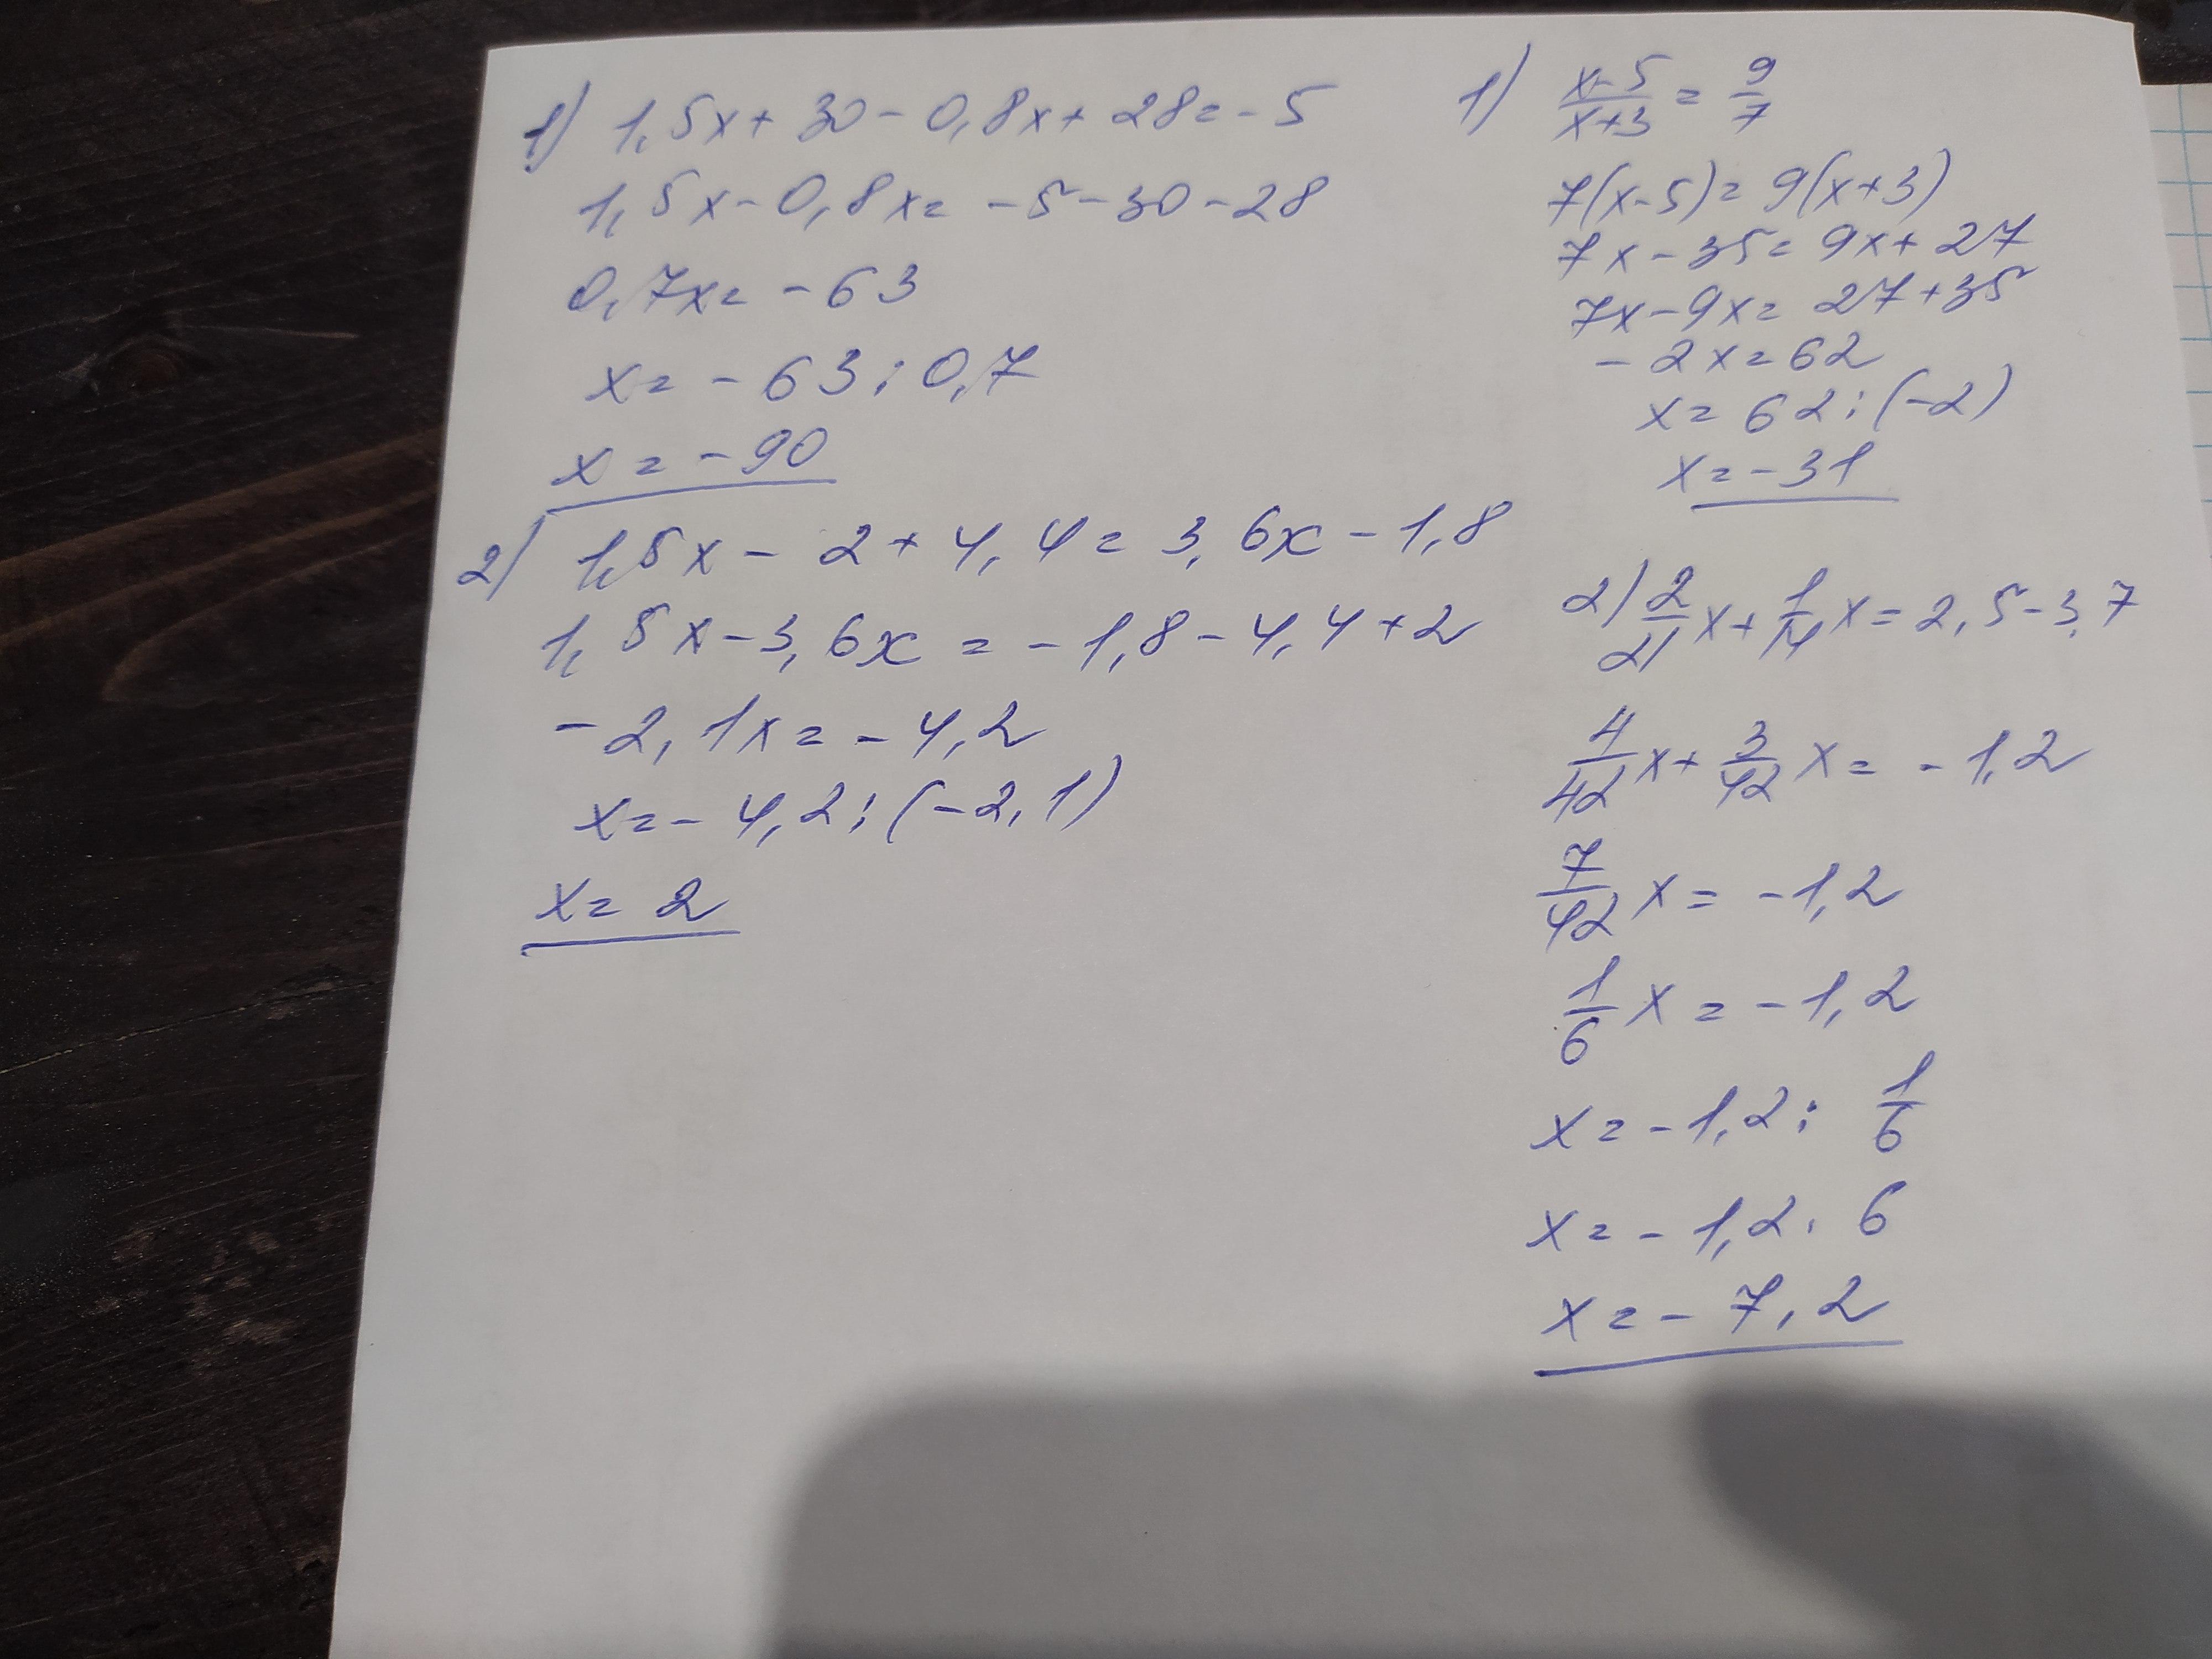 1) 1,5x + 30 - 0,8x + 28 = -5
1,5x - 0,8x = -5 - 30 - 28
0,7x = -63
x = -63 : 0,7
x = -90
2) 1,5x - 2 + 4,4 = 3,6x - 1,8
1,5x - 3,6x = -1,8 - 4,4 + 2
-2,1x = -4,2
x = -4,2 : (-2,1)
x = 2
1) \frac{x-5}{x+3} = \frac{9}{7}
7(x-5) = 9(x+3)
7x - 35 = 9x + 27
7x - 9x = 27 + 35
-2x = 62
x = 62 : (-2)
x = -31
2) \frac{2}{21}x + \frac{1}{14}x = 2,5 - 3,7
\frac{4}{42}x + \frac{3}{42}x = -1,2
\frac{7}{42}x = -1,2
\frac{1}{6}x = -1,2
x = -1,2 : \frac{1}{6}
x = -1,2 · 6
x = -7,2